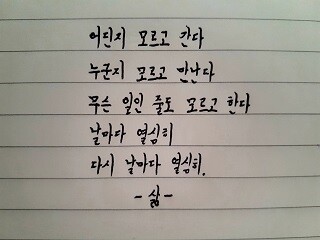 어딘지 모르고 간다
누군지 모르고 만난다
무슨 일인 줄도 모르고 한다
날마다 열심히
다시 날마다 열심히.
- 삶 -